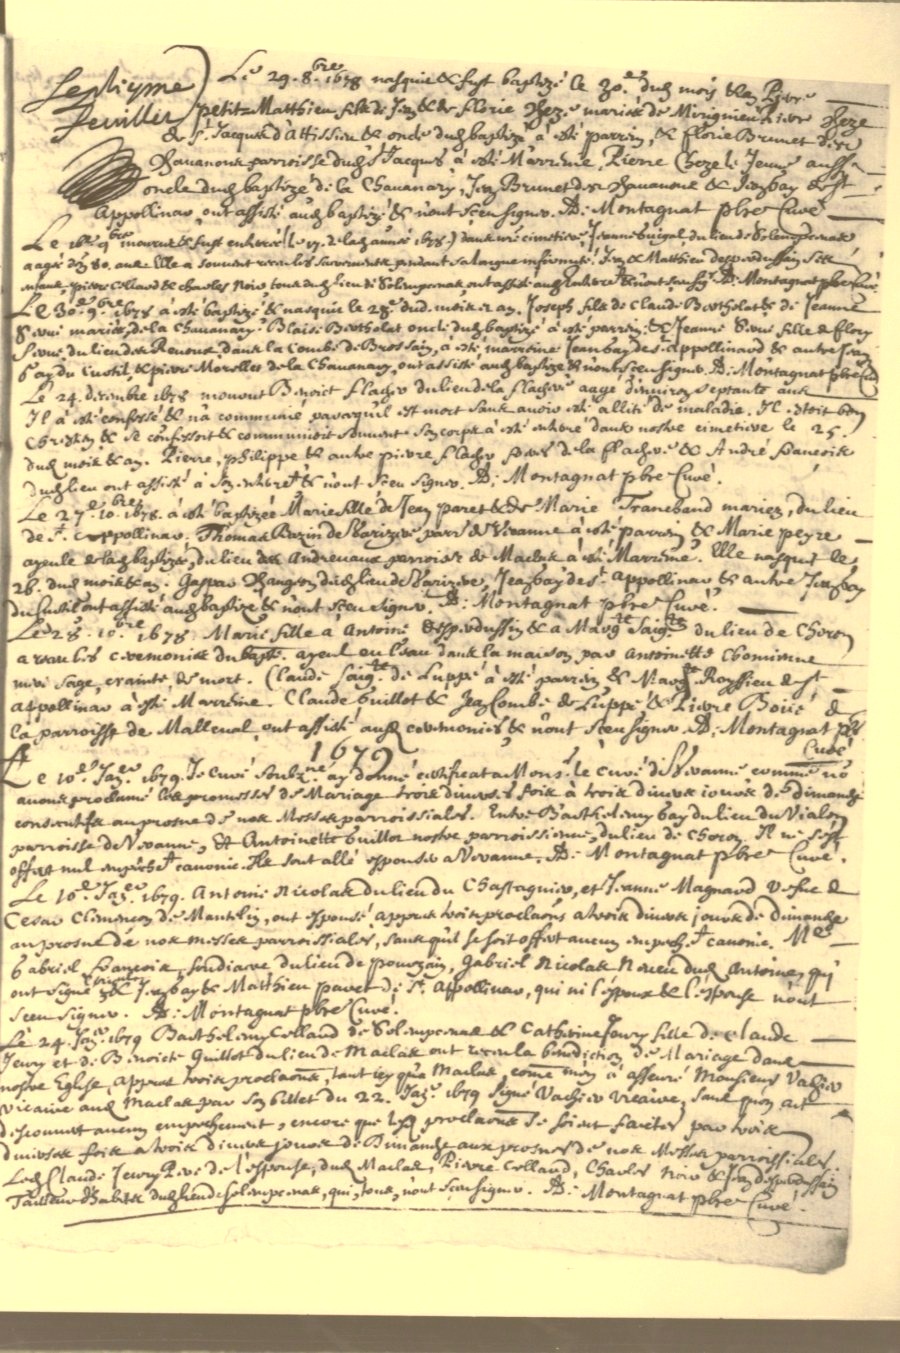 Septiyme feuillet
Le 29. 8.bre 1678 nasquit & fust baptizé le 30.e dud. mois & an Pierre
petit Matthieu fils de Jean & de Florie Cheze mariés de Pierre Cheze
& St. Jacques d'Attissieu & oncle dud. baptizé a esté parrin, & Florie Brunet de
Chavanon parroisse dud. St Jacques a esté Marrine. Pierre Cheze le Jeune aussi
oncle dud. baptizé de la Chavanary, Jean Brunet de Chavanon & Jean bay de St
Appollinar, ont assisté aud. baptizé & n'ont sceu signer. A: Montagnat pbre Curé
Le 16.e 9.bre mourut & fust enterré (le 17. de lad. année 1678.) dans nre cimetiere, Jeanne du lieu de Solempernak
aagée de 80. ans. Elle a souvent receu les sacrements pendant sa longue infirmité. Jean & Matthieu desperdussin
Pierre Colland & Charles Noir tous dud. lieu de Solempernak, ont assisté aud. enterrement & n'ont sceu signer. A: Montagnat pbre Curé.
Le 30.e 9.bre 1678 a esté baptizé & nasquit le 28.e dud. mois & an, Joseph fils de Claude Bertholat & de Jeanne
Serve mariés, de la Chavanary. Blaise Bertholat oncle dud. baptizé a esté parrin, & Jeanne Serve fille de Flory
Serve du lieu des Renoux, dans la Combe de Brossain, a esté marrine Jean bay de St. appollinard & autre Jean
bay du Custil & pierre Morelles de la Chavanary, ont assisté aud. baptizé & n'ont sceu signer. A: Montagnat pbre Curé
Le 24. decembre 1678 mourut Benoict Flachier du lieu de la flachere aagé d'environ septante ans
Il a esté confessé & n'a communié parcequ'il est mort sans avoir esté allité de maladie. Il estoit bon
Chrestien & se confessoit & communioit souvent son corps a esté enterré dans nostre cimetiere le 25.
dud. mois & an. Pierre, philippe & autre pierre flachier freres de la flachere & André francois
dud. lieu ont assisté a son enterremt & n'ont sceu signer. A: Montagnat pbre Curé.
Le 27.e 10.bre 1678. a esté baptizée Marie fille de Jean paret & de Marie Tranchand mariez, du lieu
de St. appollinar. Thomas Razin de Sarizier, parr. de Vivanne a esté parrin & Marie peyre
ayeule de lad. baptizée, du lieu des Andrevaux parroisse de Maclas a esté Marrine. Elle nasquit le
26. dud. mois & an. Gaspar du lieu de Sarizier, Jean bay de St appollinar & autre Jean bay
du Custil ont assisté aud. baptizé & n'ont sceu signer. A: Montagnat pbre Curé.
Le 28. 10.bre 1678. Marie fille a Antoine desperdussin & a Marg.te du lieu de Choron
a receu les ceremonies du bapt. ayant eu l'eau dans la maison par Antoinette Chomienne
mere sage, crainte de mort. Claude de Luppé a esté parrin & Marg.te Royssieu de St
appollinar a esté Marrine. Claude Guillot & Jean Combe de Luppé & Pierre Bouié de
la parroisse de Malleval, ont assisté aux ceremonies & n'ont sceu signer. A: Montagnat pbre
Curé
1679
Le 10.e Jan.er 1679. Je Curé soubz.né ay donné certificat a Mons.r le curé de Vivanne comme no
avons proclamé les promesses de Mariage trois diverses fois a trois divers jours de dimanche
consecutifs au prosne de nos Messes parroissiales. Entre Barthelemy bay du lieu du Viallon
parroisse de Vivanne, & Antoinette Guillot nostre parroissienne, du lieu de Choron. Il ne s'est
offert nul empeschemt canonic. Ils sont allé espouser a Vivanne. A: Montagnat pbre Curé.
Le 16.e Jan.er 1679. Antoine Nicolas du lieu du Chastagnier, et Jeanne Magnard vefve de
Cesar Clemencon de Mantelin, ont espousé appres trois proclaoñs a trois divers jours de dimanche
au prosne de nos messes parroissiales, sans qu'il se soit offert aucun empeschemt canonic. Mes
Gabriel francois, soudiacre du lieu de pourzain, Gabriel Nicolas Neveu dud. Antoine, qui
ont signé & Jean bay & Matthieu paret de St. Appollinar, qui ni l'espoux & l'espouse n'ont
sceu signer. A: Montagnat pbre Curé.
Le 24. Janer 1679 Barthelemy Colland de Solempernak & Catherine Jeury fille de Claude
Jeury et de Benoicte Guillot du lieu de Maclas ont receu la benediction de Mariage dans
nostre Eglise, appres trois proclaons, tant icy qu'a Maclas, come m'en a asseuré Monsieur Vachier
vicaire aud. Maclas par son billet du 22. Janer 1679 signé Vachier vicaire, sans qu'on ait
descouvert aucun empeschement, encore que les proclaons se soient faictes par trois
diverses fois a trois divers jours de Dimanche aux prosnes de nos Messes parroissiales.
Led. Claude Jeury Pere de l'espouse, dud. Maclas, Pierre Colland, Charles Noir & Jean desperdussin
Tailleur d'habits dud. lieu de Solempernak, qui, tous, n'ont sceu signer. A: Montagnat pbre Curé.